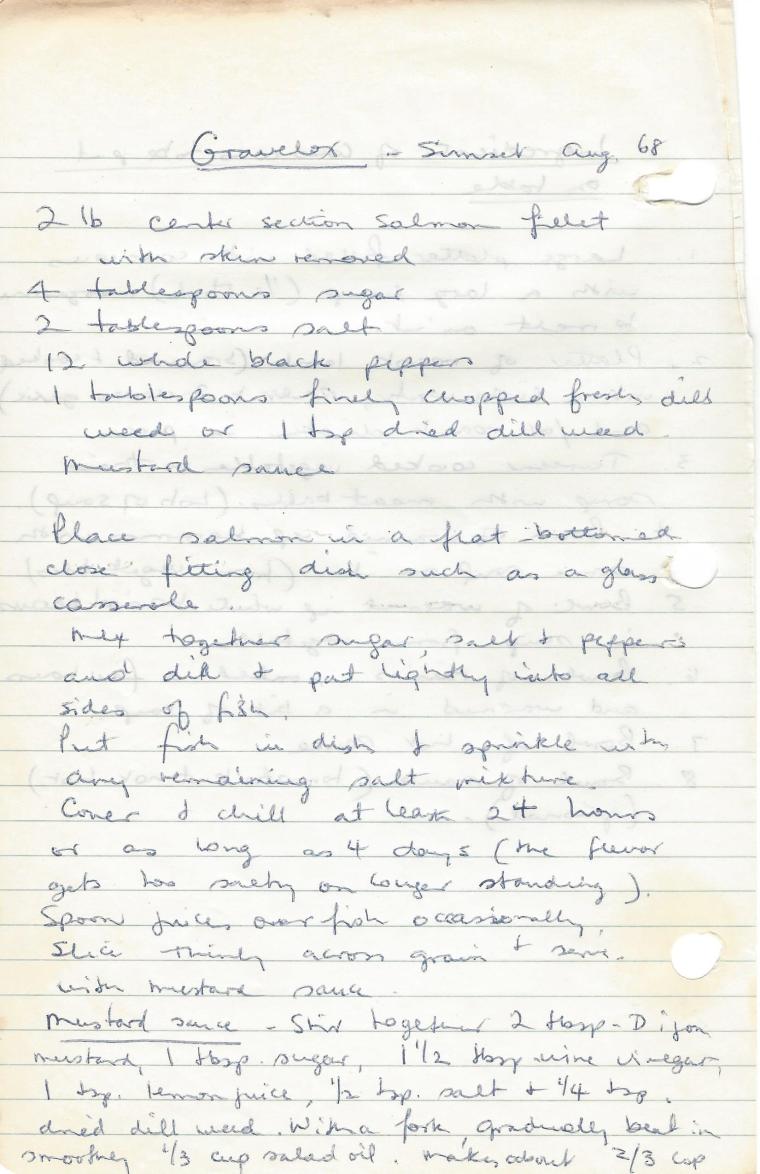 Gravelox - Sunset Aug. 68
2 lb center section salmon fillet
with skin removed
4 tablespoons sugar
2 tablespoons salt
12 whole black peppers
1 tablespoons finely chopped fresh dill
weed or 1 tsp dried dill weed.
mustard sauce
Place salmon in a flat-bottomed
close fitting dish such as a glass
casserole.
Mix together sugar, salt & peppers
and dill & pat lightly into all
sides of fish.
Put fish in dish & sprinkle with
any remaining salt mixture.
Cover & chill at least 24 hours
or as long as 4 days (the flavor
gets too salty on longer standing).
Spoon juices over fish occasionally.
Slice thinly across grain & serve.
with mustard sauce.
Mustard sauce - Stir together 2 tbsp - Dijon
mustard, 1 tbsp. sugar, 1 1/2 tbsp wine vinegar,
1 tsp. lemon juice, 1/2 tsp. salt & 1/4 tsp.
dried dill weed. With a fork, gradually beat in
smoothly 1/3 cup salad oil. Makes about 2/3 cup